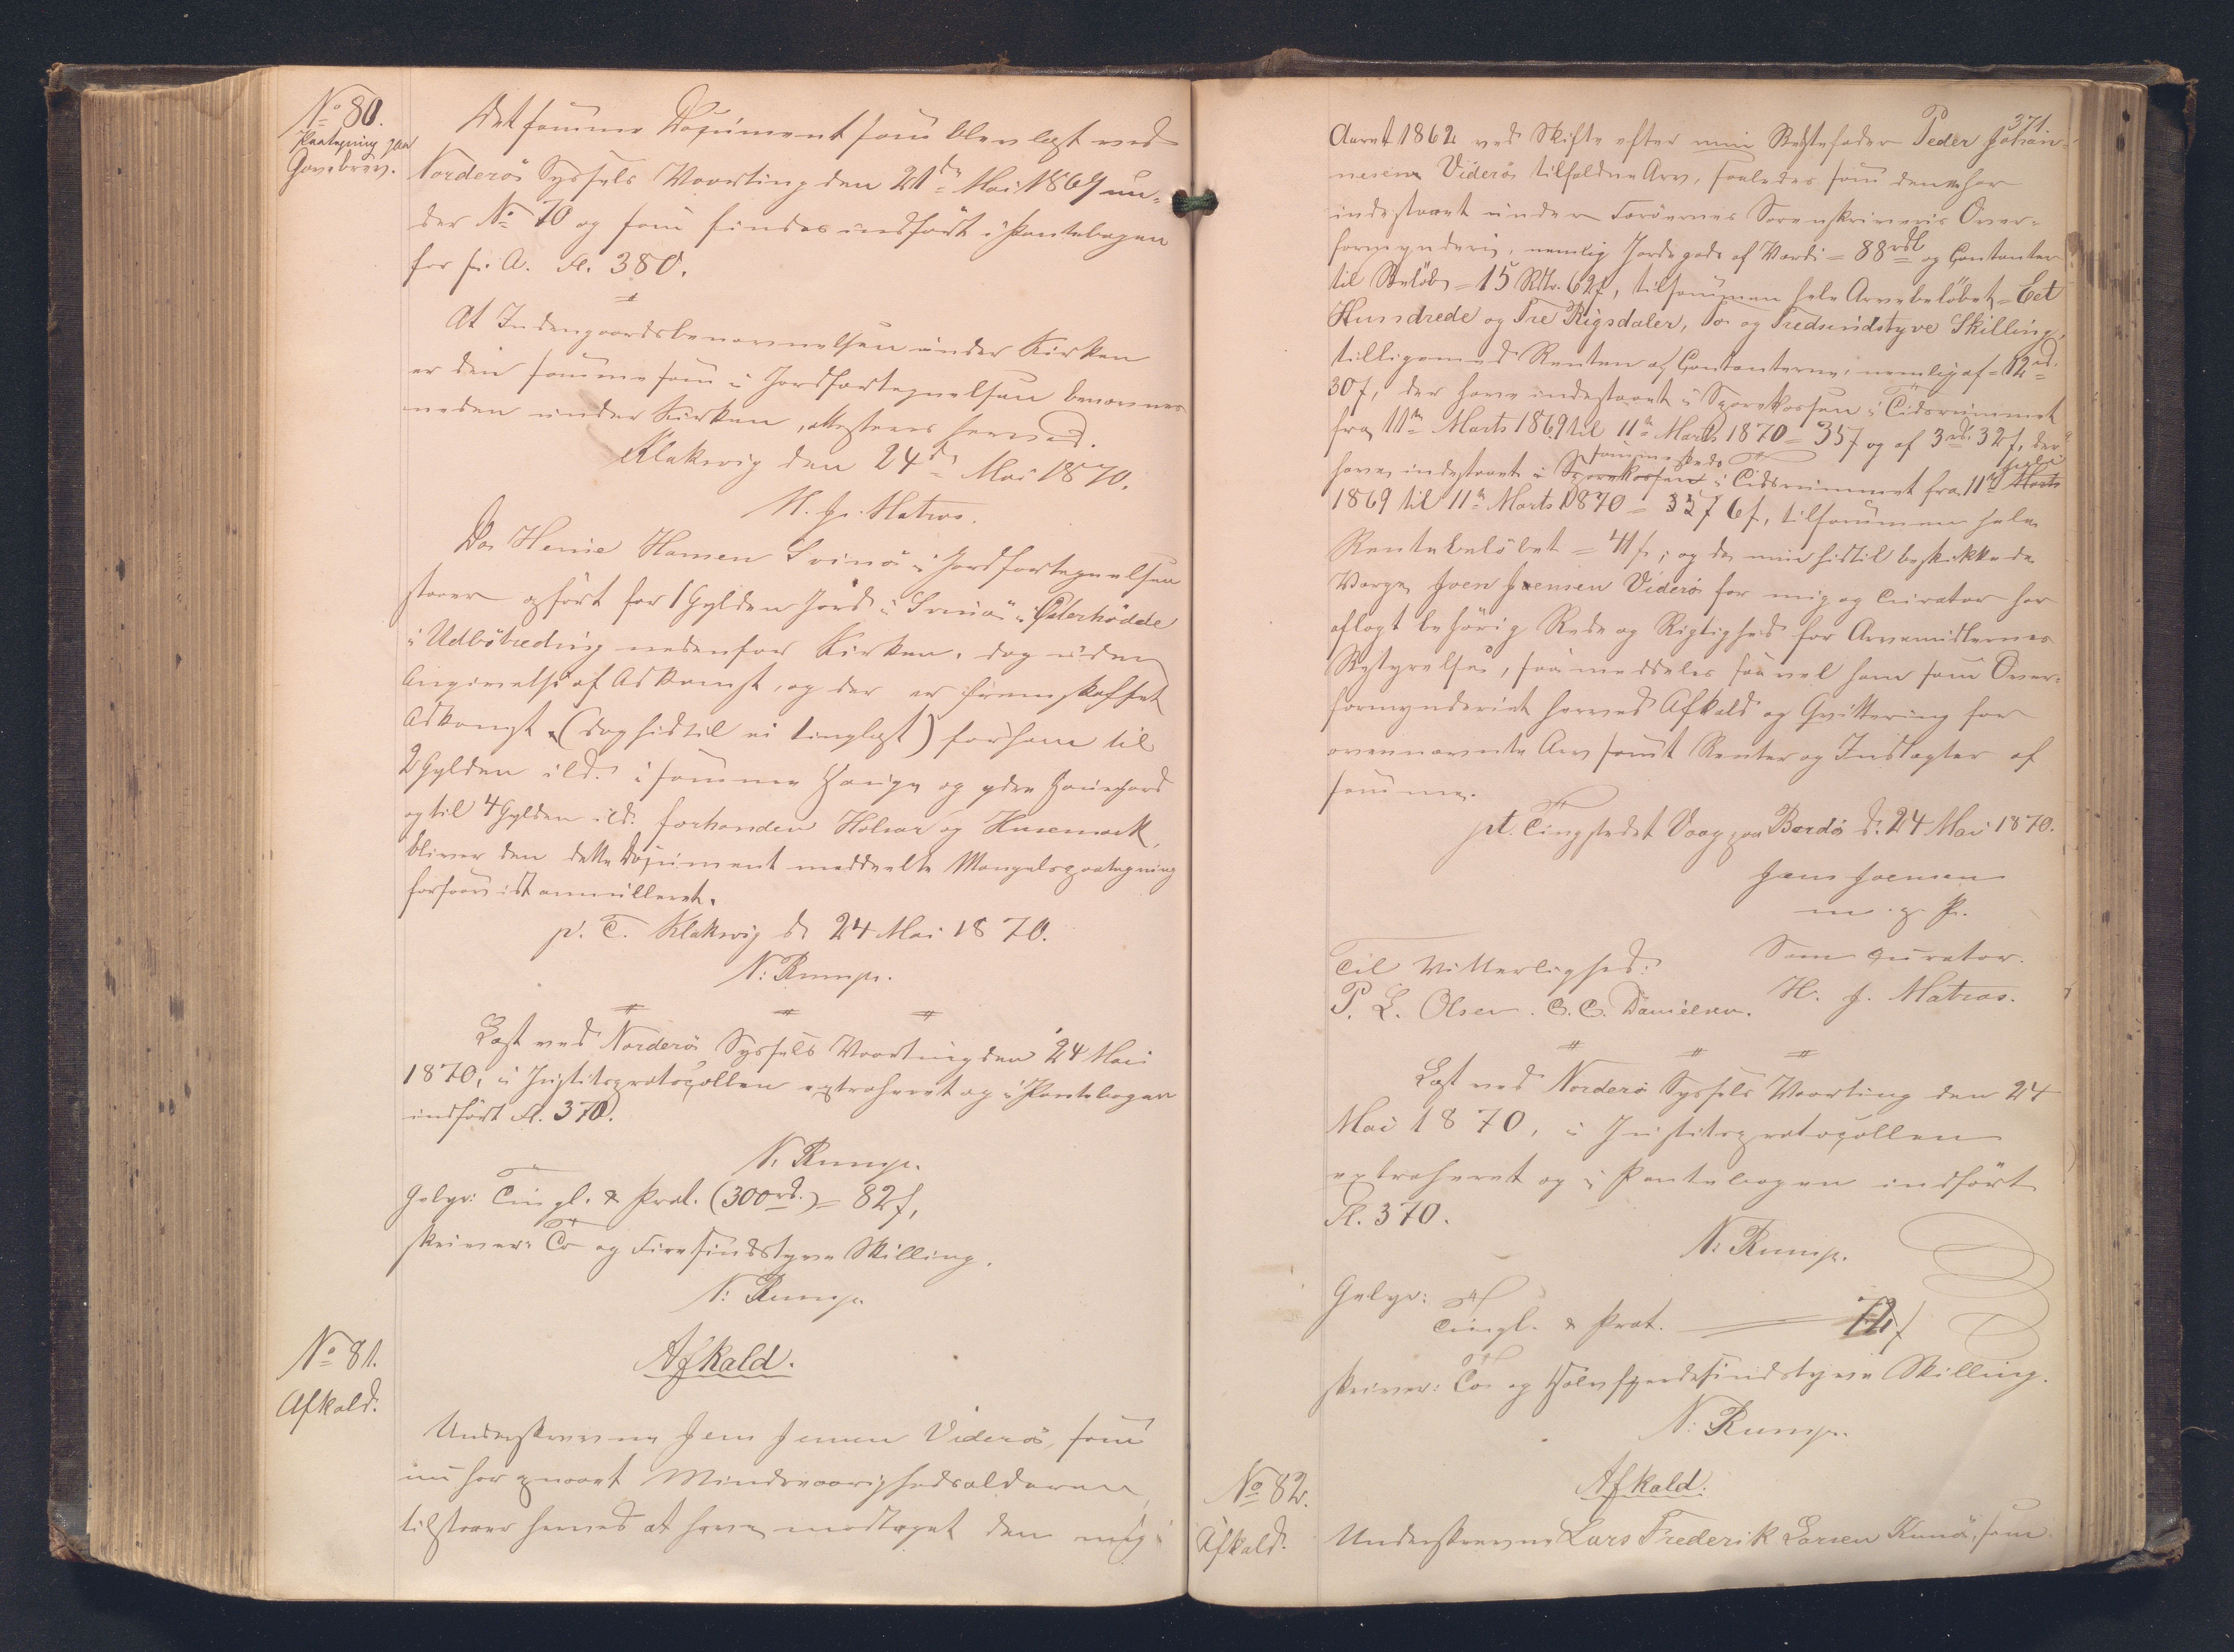 No 80.
Paategning paa
Gavebrev.
Det samme Document som blev læst ved
Norderø Syssels Vaarting den 21de Mai 1867 un-
der No 70 og som findes indført i Pantebogen
for fr. A. Fl. 380.
At Indengaardsbenævnelsen under Kirken
er den samme som i Jordfortegnelsen benævnes
neden under Kirken, attesteres herved.
Klaksvig den 24de Mai 1870.
H. J. Matras.
Da Heine Hansen Svinø i Jordfortegnelsen
staaer opført for 1 Gylden Jord i Svinø i Østerhødde
i Udbøtredning nedenfor Kirken, dog uden
Angivelse af Adkomst, og der er fremskaffet
Adkomst (dog hidtil ei tinglæst) for ham til
2 Gylden ild. i samme Hauge og ydre Hauejord
og til 4 Gylden ild. forhonden Holvar og Husemark,
bliver den dette Document meddeelte Mangelspaategning
forsaavidt annulleret.
p. T. Klaksvig d. 24 Mai 1870.
N: Rump.
Læst ved Norderø Syssels Vaarting den 24 Mai
1870, i Justitsprotocollen extraheret og i Pantebogen
indført Fl. 370.
N. Rump.
Gebyr: Tingl. & Prot. (300 rd.) = 82 s,
skriver: To og Fiirsindstyve Skilling.
N: Rump.
No 81.
Afkald.
Afkald.
Underskrevne Jens Jensen Viderø, som
nu har opnaaet Mindreaarighedsalderen,
tilstaaer herved at have modtaget den mig i
371.
Aaret 1862 ved Skifte efter min Stedfader Peder Johan-
nesen Viderø tilfaldne Arv, saaledes som denne har
indestaaet under Færøernes Sorenskriveris Over-
formynderi, nemlig Jordegods af Værdi = 88 rdl og Contanter
til Beløb = 15 Rdlr. 62 s, tilsammen hele Arvebeløbet = Eet
Hundrede og Tre Rigsdaler, To og Tredsindstyve Skilling,
tilligemed Renten af Contanterne, nemlig af = 12 rd.
30 s, der have indestaaet i Sparekassen i Tidsrummet
fra 11te Marts 1869 til 11te Marts 1870 = 35 s og af 3 rd. 32 s, der
sammesteds
have indestaaet i Sparekassen i Tidsrummet fra 11te Marts
1869 til 11te Marts 1870 = 6 s, tilsammen hele
Rentebeløbet = 41 s; og da min hidtil beskikkede
Værge Joen Joensen Viderø for mig og Curator har
aflagt behørig Rede og Rigtighed for Arvemidlernes
Bestyrelse, saa meddeles saavel ham som Over-
formynderiet herved Afkald og Qvittering for
ovennævnte Arv samt Renter og Indtægter af
samme.
pt. Tingstedet Vaag paa Bordø d. 24 Mai 1870.
Jens Joensen
m. p. P.
Til Vitterlighed:
Som Curator.
P. L. Olsen. C. C. Danielsen.
H. J. Matras.
Læst ved Norderø Syssels Vaarting den 24
Mai 1870, i Justitsprotocollen
extraheret og i Pantebogen indført
Fl. 370.
N: Rump.
Gebyr:
Tingl. & Prot. 72 s
skriver: To og Halvfjerdsindstyve Skilling.
N: Rump.
No 82.
Afkald.
Afkald.
Underskrevne Lars Frederik Larsen Kunø, som